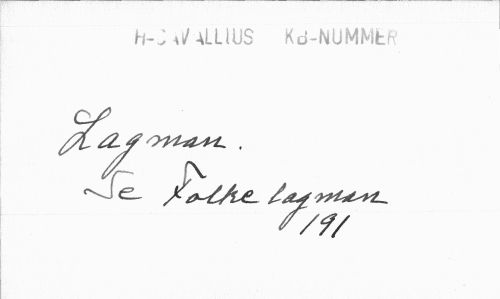 H-CAVALLIUS KB-NUMMER
Lagman.
Se Folke lagman
191